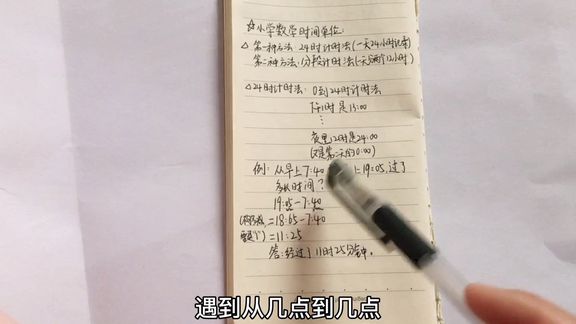 ☆小学数学时间单位:
△第一种方法 24时计时法(一天24小时记录)
第二种方法:分段计时法(一天分两个12小时)
△24时计时法: 0到24时计时法
下午1时是13:00
⋮
夜里12时是24:00
(又是第二天的0:00)
例: 从早上7:40 19:05,过了
多长时间?
19:05-7:40
=18:65-7:40
=11:25
答:经过了11时25分钟。
遇到从几点到几点